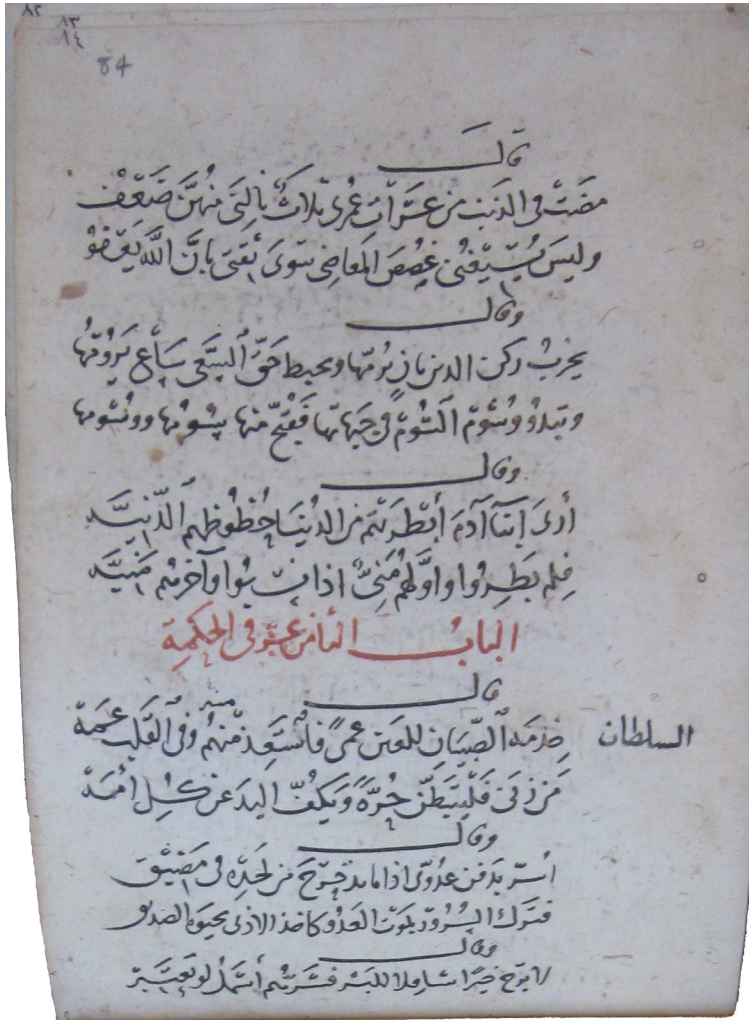 ٨٢
١٣
١٤
84
قال
مضت في الذنب من عشرات عمري ثلاث بالتي منهن ضعف
وليس يسيغني غصص المعاصي سوى ثقتي بأن الله يعفو
وقال
يخرب ركن الدين بان يرمها ويحيط حق السعي ساع يرومها
وتبدو وشوم الشوم في جبهاتها فيقبح منها
وقال
أرى ابنا آدم أبطرتهم من الدنيا حظوظهم الدنيه
فلم بطروا واولهم مني اذا نسبوا وآخرهم منيه
الباب الثامن عشر في الحكمة
قال
السلطان
خدمة للعين عمى فاستعذ منهم وفي القلب عمه
من زنى حرة ويكف اليد عن كل أمه
وقال
اسر بدفن عدوى اذا ما من لحده في مضيق
فترك السرور بموت العدو كاخذ الاذى بحيوة الصديق
وقال
لا ترج خيرا شاملا للبشر فشرهم أشمل لو تعتبر